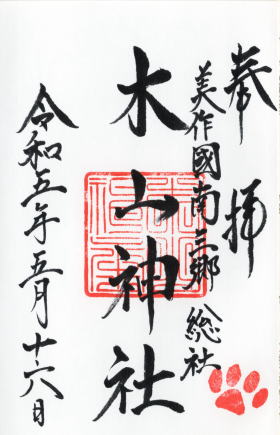 奉拝
美作國南三郷 総社
木山神社
令和五年五月十六日